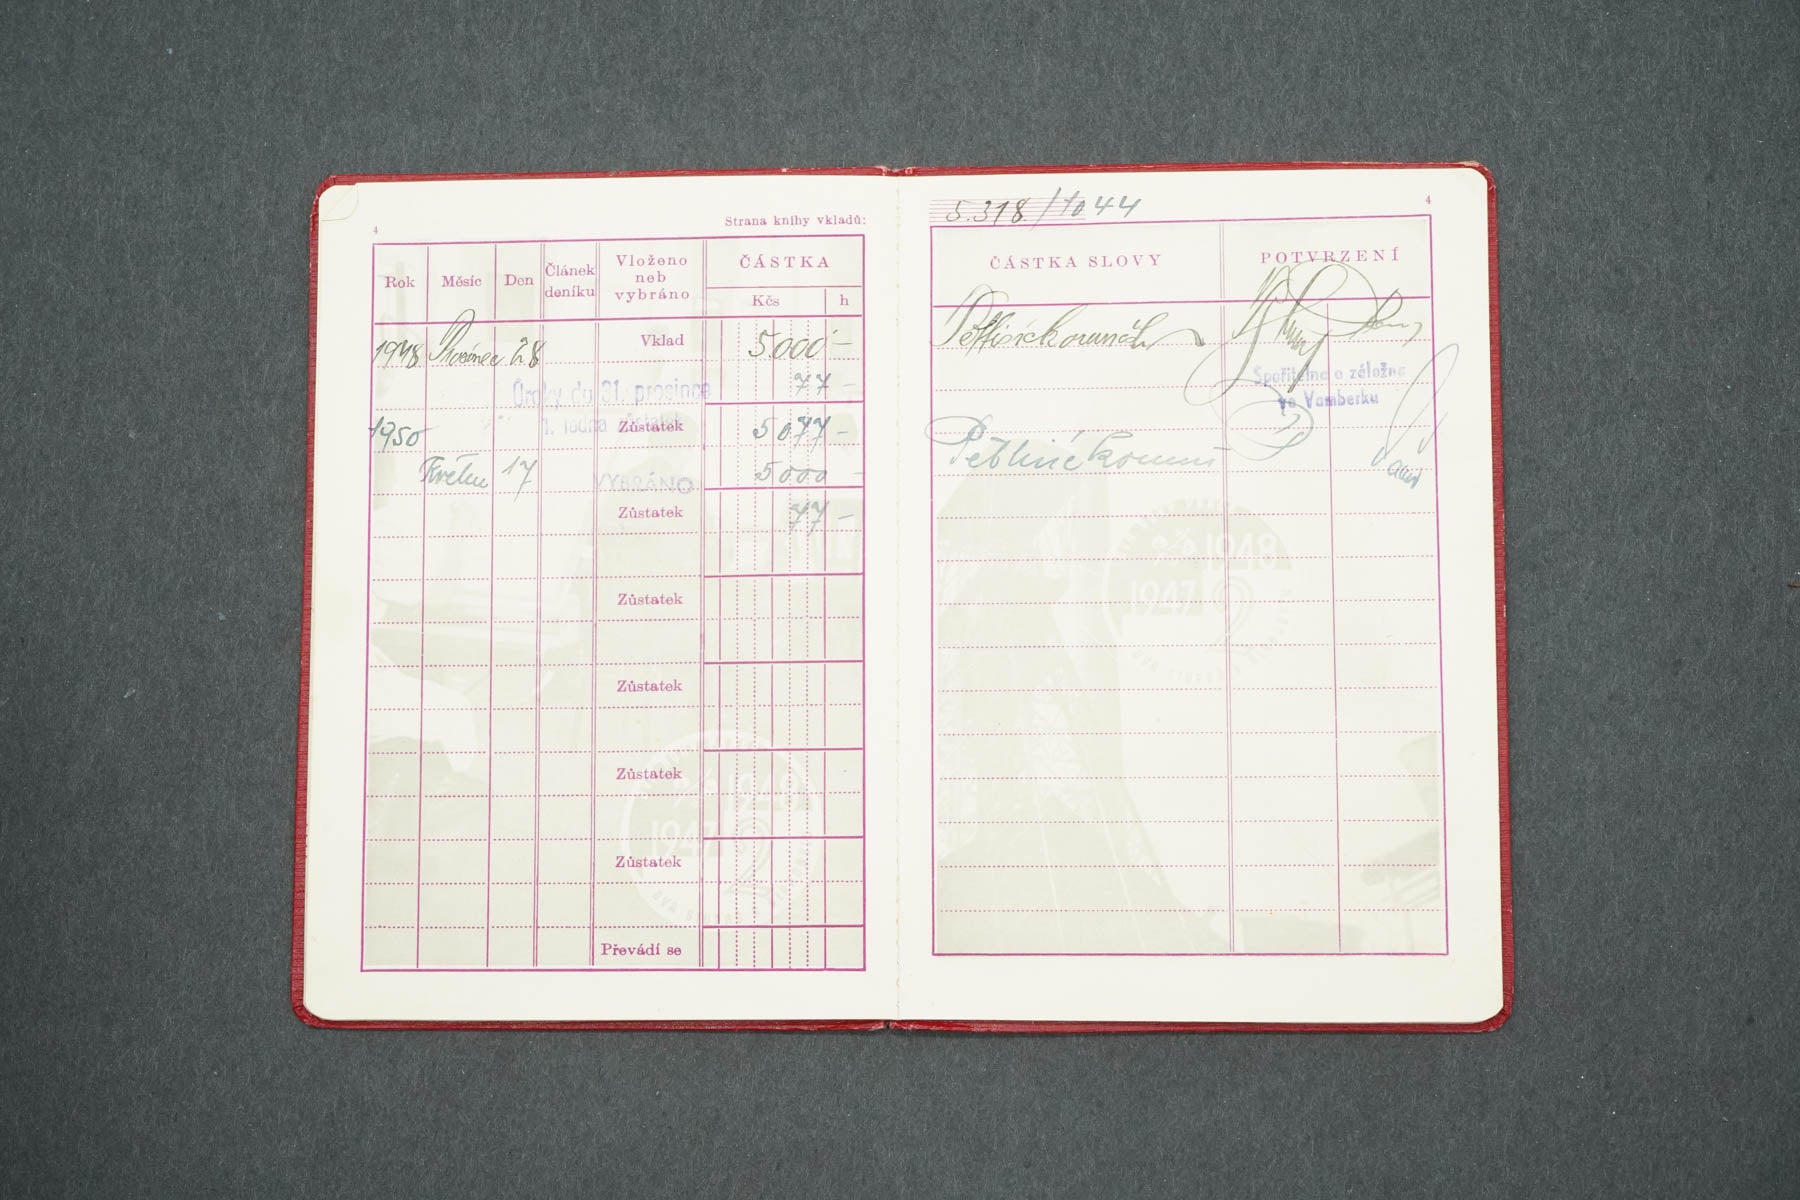 4
Strana knihy vkladů:
Rok Měsíc Den Článek deníku Vloženo neb vybráno ČÁSTKA
Kčs h
1948 Prosinec 28 Vklad 5000 –
Úroky du 31. prosince 77 –
1950 Zůstatek 5077 –
Květen 17 VYBRÁNO 5000 –
Zůstatek 77 –
Zůstatek
Zůstatek
Zůstatek
Zůstatek
Převádí se
5.318./1044
4
ČÁSTKA SLOVY POTVRZENÍ
Pěttisíckorunčs
Spořitelna a záložna
ve Vamberku
Pěttisíckorun
1947 1948